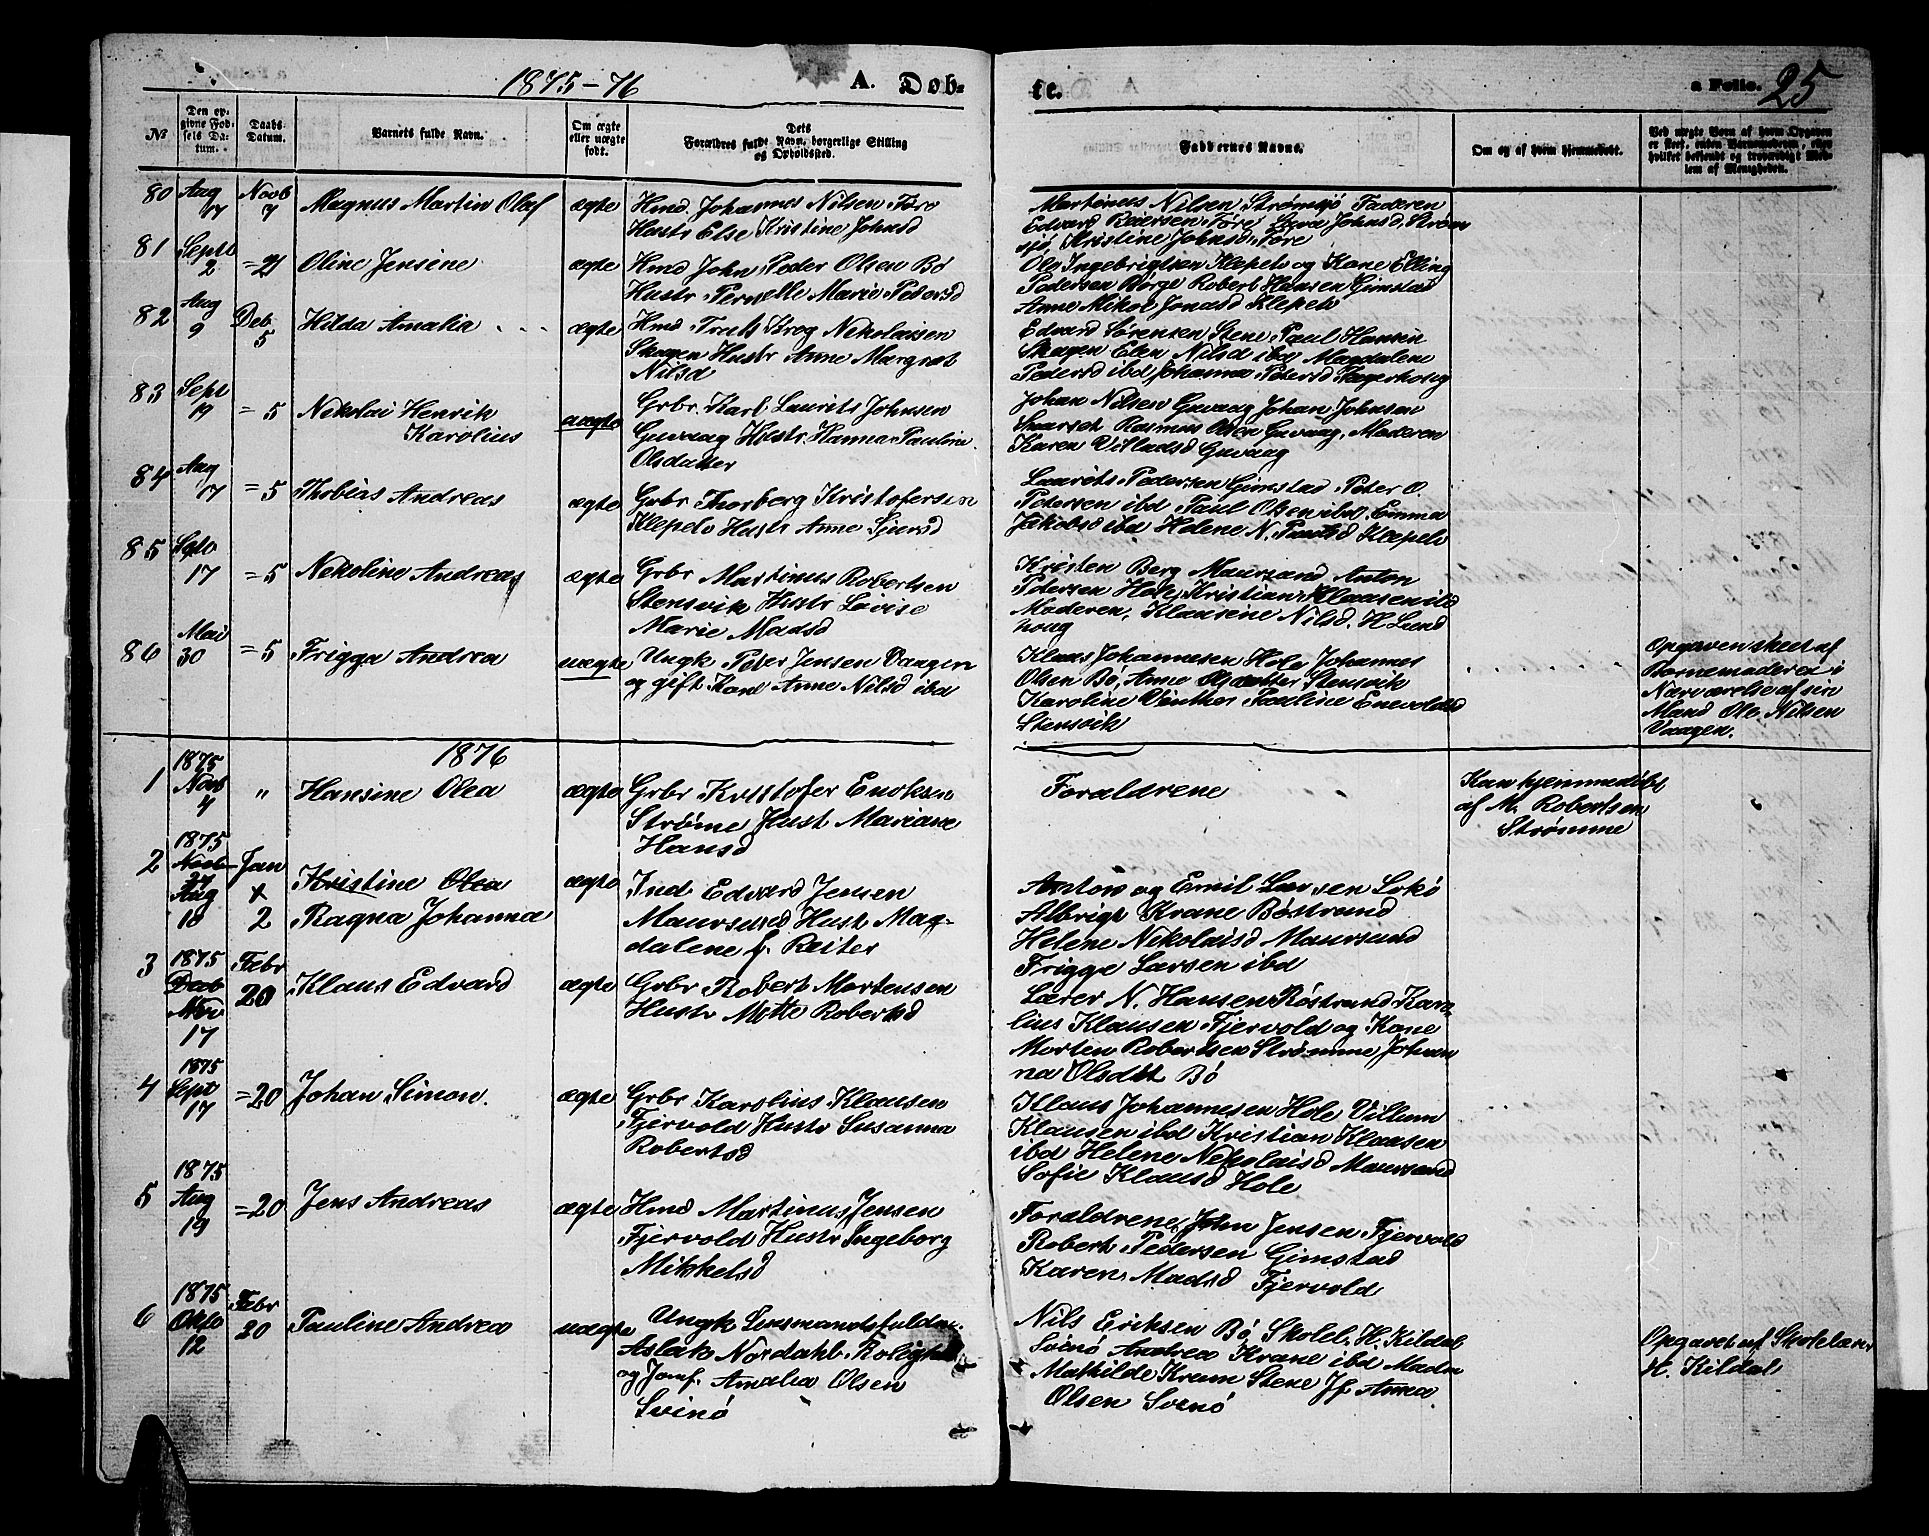 1875-76
A. Døb=
te.
a Folio. 25
№
Den op-
givne Fød-
sels Da-
tum.
Daabs-
Datum.
Barnets fulde Navn.
Om ægte
eller uægte
født.
Dets
Forældres fulde Navn, borgerlige Stilling
og Opholdssted.
Faddernes Navne.
Om og af hvem hjemmedøbt.
Ved uægte Børn af hvem Opgaven
er skeet, enten Barnemoderen, eller
hvilket bekjendt og troværdigt Med-
lem af Menigheden.
80 Aug 17 Novb 7 Magnus Martin Olaf ægte Hmd Johannes Nilsen Føre
Hustr Else Kristine Johnsd
Martinus Nilsen Strømsjø Faderen
Edvard Reiersen Føre, Johnsd, Strøm
sjø Kristine Johnsd Føre
81 Septb 2 = 21 Oline Jensine ægte Hmd John Peder Olsen Bø
Hustr Pernelle Marie Pedersd
Ole Ingebrigtsen Klepels og Kone Elling
Pedersen Børge Robert Hansen Gimstad
Anne Mikol Jonasd Klepels
82 Aug 9 Deb 5 Hilda Amalia ægte Hmd Krog Nekolaisen
Skagen Hustr Anne Margret
Nilsd
Edvard Sørensen Stene Paul Hansen
Skagen Elen Nilsd ibd Magdalene
Pedersd ibd Johanna Petersd
83 Sept 19 = 5 Nekolai Henrik
Karolius
uægte Grbr Karl Laurits Johnsen
Guvaag Hustr Hanna Pauline
Olsdatter
Johan Nilsen Guvaag Johan Johnsen
Rasmus Olsen Guvaag, Moderen
Karen Villadsd Guvaag
84 Aug 17 = 5 Thobias Andreas ægte Grbr Thorberg Kristofersen
Klepels Hustr Anne Sjursd
Laurits Pedersen Gimstad Peter O.
Petersen ibd Paul Olsen ibd, Emma
Jakobsd ibd Helene N. Klepels
85 Sept 17 = 5 Nekoline Andreas ægte Grbr Martinus Robertsen
Stensvik Hustr Lovise
Marie Madsd
Kristen Berg Maursund Anton
Petersen Hole, Kristian Klausen ibd
Moderen, Klausine Nilsd. H Lund
houg
86 Mai 30 = 5 Frigga Andrea uægte Ungk Peter Jensen Vaagen
og gift Kone Anne Nilsd ibd
Klaus Johannesen Hole Johannes
Olsen Bø, Anne Olsdatter Stensvik
Karoline Vinther Pauline Enevoldsd
Stensvik
Opgaven skeet af
Barnemoderen i
Nærværelse af sin
Mand Ole Nilsen
Vaagen.
1876
1 1875 Novb 4 " Hansine Olea ægte Grbr Kristofer Enoksen
Strøme Hust Mariane
Hansd
Forældrene
Kun hjemmedøbt
af M. Robertsen
Strømme
2 1875 Novb 27 Aug 18 Jan x 2 Kristine Olea
Ragna Johanna
ægte Ind Edvard Jensen
Maursund Hust Mag-
dalene f. Reiter
Anton og Emil Larsen Lokø
Albrigt Krane Bøstrand
Helene Nekolaisd Maursund
Frigge Larsen ibd
3 1875 Decb Nov 17 Febr 20 Klaus Edvard ægte Grbr Robert Mortensen
Hustr Mette Robertsd
Lærer N. Hansen Røstrand Karo
lius Klausen Fjervold og Kone
Morten Robertsen Strømme, Johan
na Olsdtt Bø
4 1875 Sept 17 = 20 Johan Simon. ægte Grbr Karolius Klausen
Fjervold Hustr Susanna
Robertsd
Klaus Johannesen Hole Villum
Klausen ibd Kristian Klausen
ibd Helene Nekolaisd Maursund
Sofie Klausd Hole
5 1875 Aug 19 = 20 Jens Andreas ægte Hmd Martinus Jensen
Fjervold Hustr Ingeborg
Mikkelsd
Forældrene, John Jensen Fjervold
Robert Pedersen Gimstad
Karen Madsd Fjervold
6 1875 Oktb 12 Febr 20 Pauline Andrea uægte Ungk Lensmandsfuldm.
Aslak Nordahl
og Jomf. Amalia Olsen
Svinø
Nils Eriksen Bø, Skolel. H. Kildal
Svinø Andrea Krane ibd Madm
Mathilde Krum Stene Jf Anna
Olsen Svinø
Opgavet af Skolelærer
H. Kildal